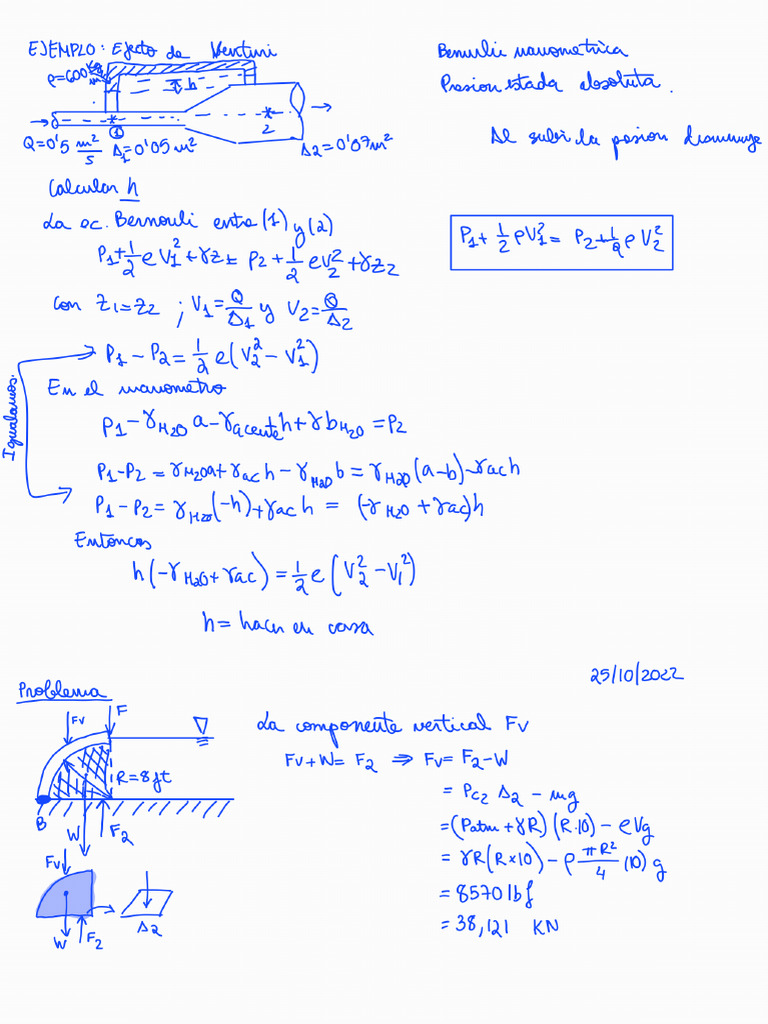 EJEMPLO: Efecto de Venturi
ρ=600 Kg/m³
h
1
2
Q=0'5 m²/s A₁=0'05 m²
A2=0'07m²
Bernulli manometrica
Presion estada absoluta.
Al subir la presion disminuye
Calcular h
La ec. Bernouli entre (1) y (2)
P₁+1/2 ρV₁²+γz₁= P₂+1/2 ρV₂²+γz₂
P₁+ 1/2 ρV₁²= P₂+1/2 ρ V₂²
con z₁=z₂ ; V₁=Q/A₁ y V₂=Q/A₂
P₁ - P₂ = 1/2 ρ(V₂² - V₁²)
Igualamos.
En el manometro
P1-γH2O a-γaceite h+γbH2O =P2
P1-P2 = γH2Oa+γac h - γH2O b = γH2O (a-b)-γac h
P1-P2= γH2O(-h)+γac h = (-γH2O + γac)h
Entonces
h(-γH2O+γac) = 1/2 ρ (V₂² - V₁²)
h= hacer en casa
25/10/2022
Problema
F
Fv
R=8ft
B
W
F2
Fv
W
F2
A2
La componente vertical Fv
Fv+W= F2 ⇒ Fv= F2-W
= Pc2 A2 - mg
=(Patm+γR)(R·10) - ρVg
= γR(R×10) - ρ πR²/4 (10) g
= 8570 lbf
= 38,121 KN